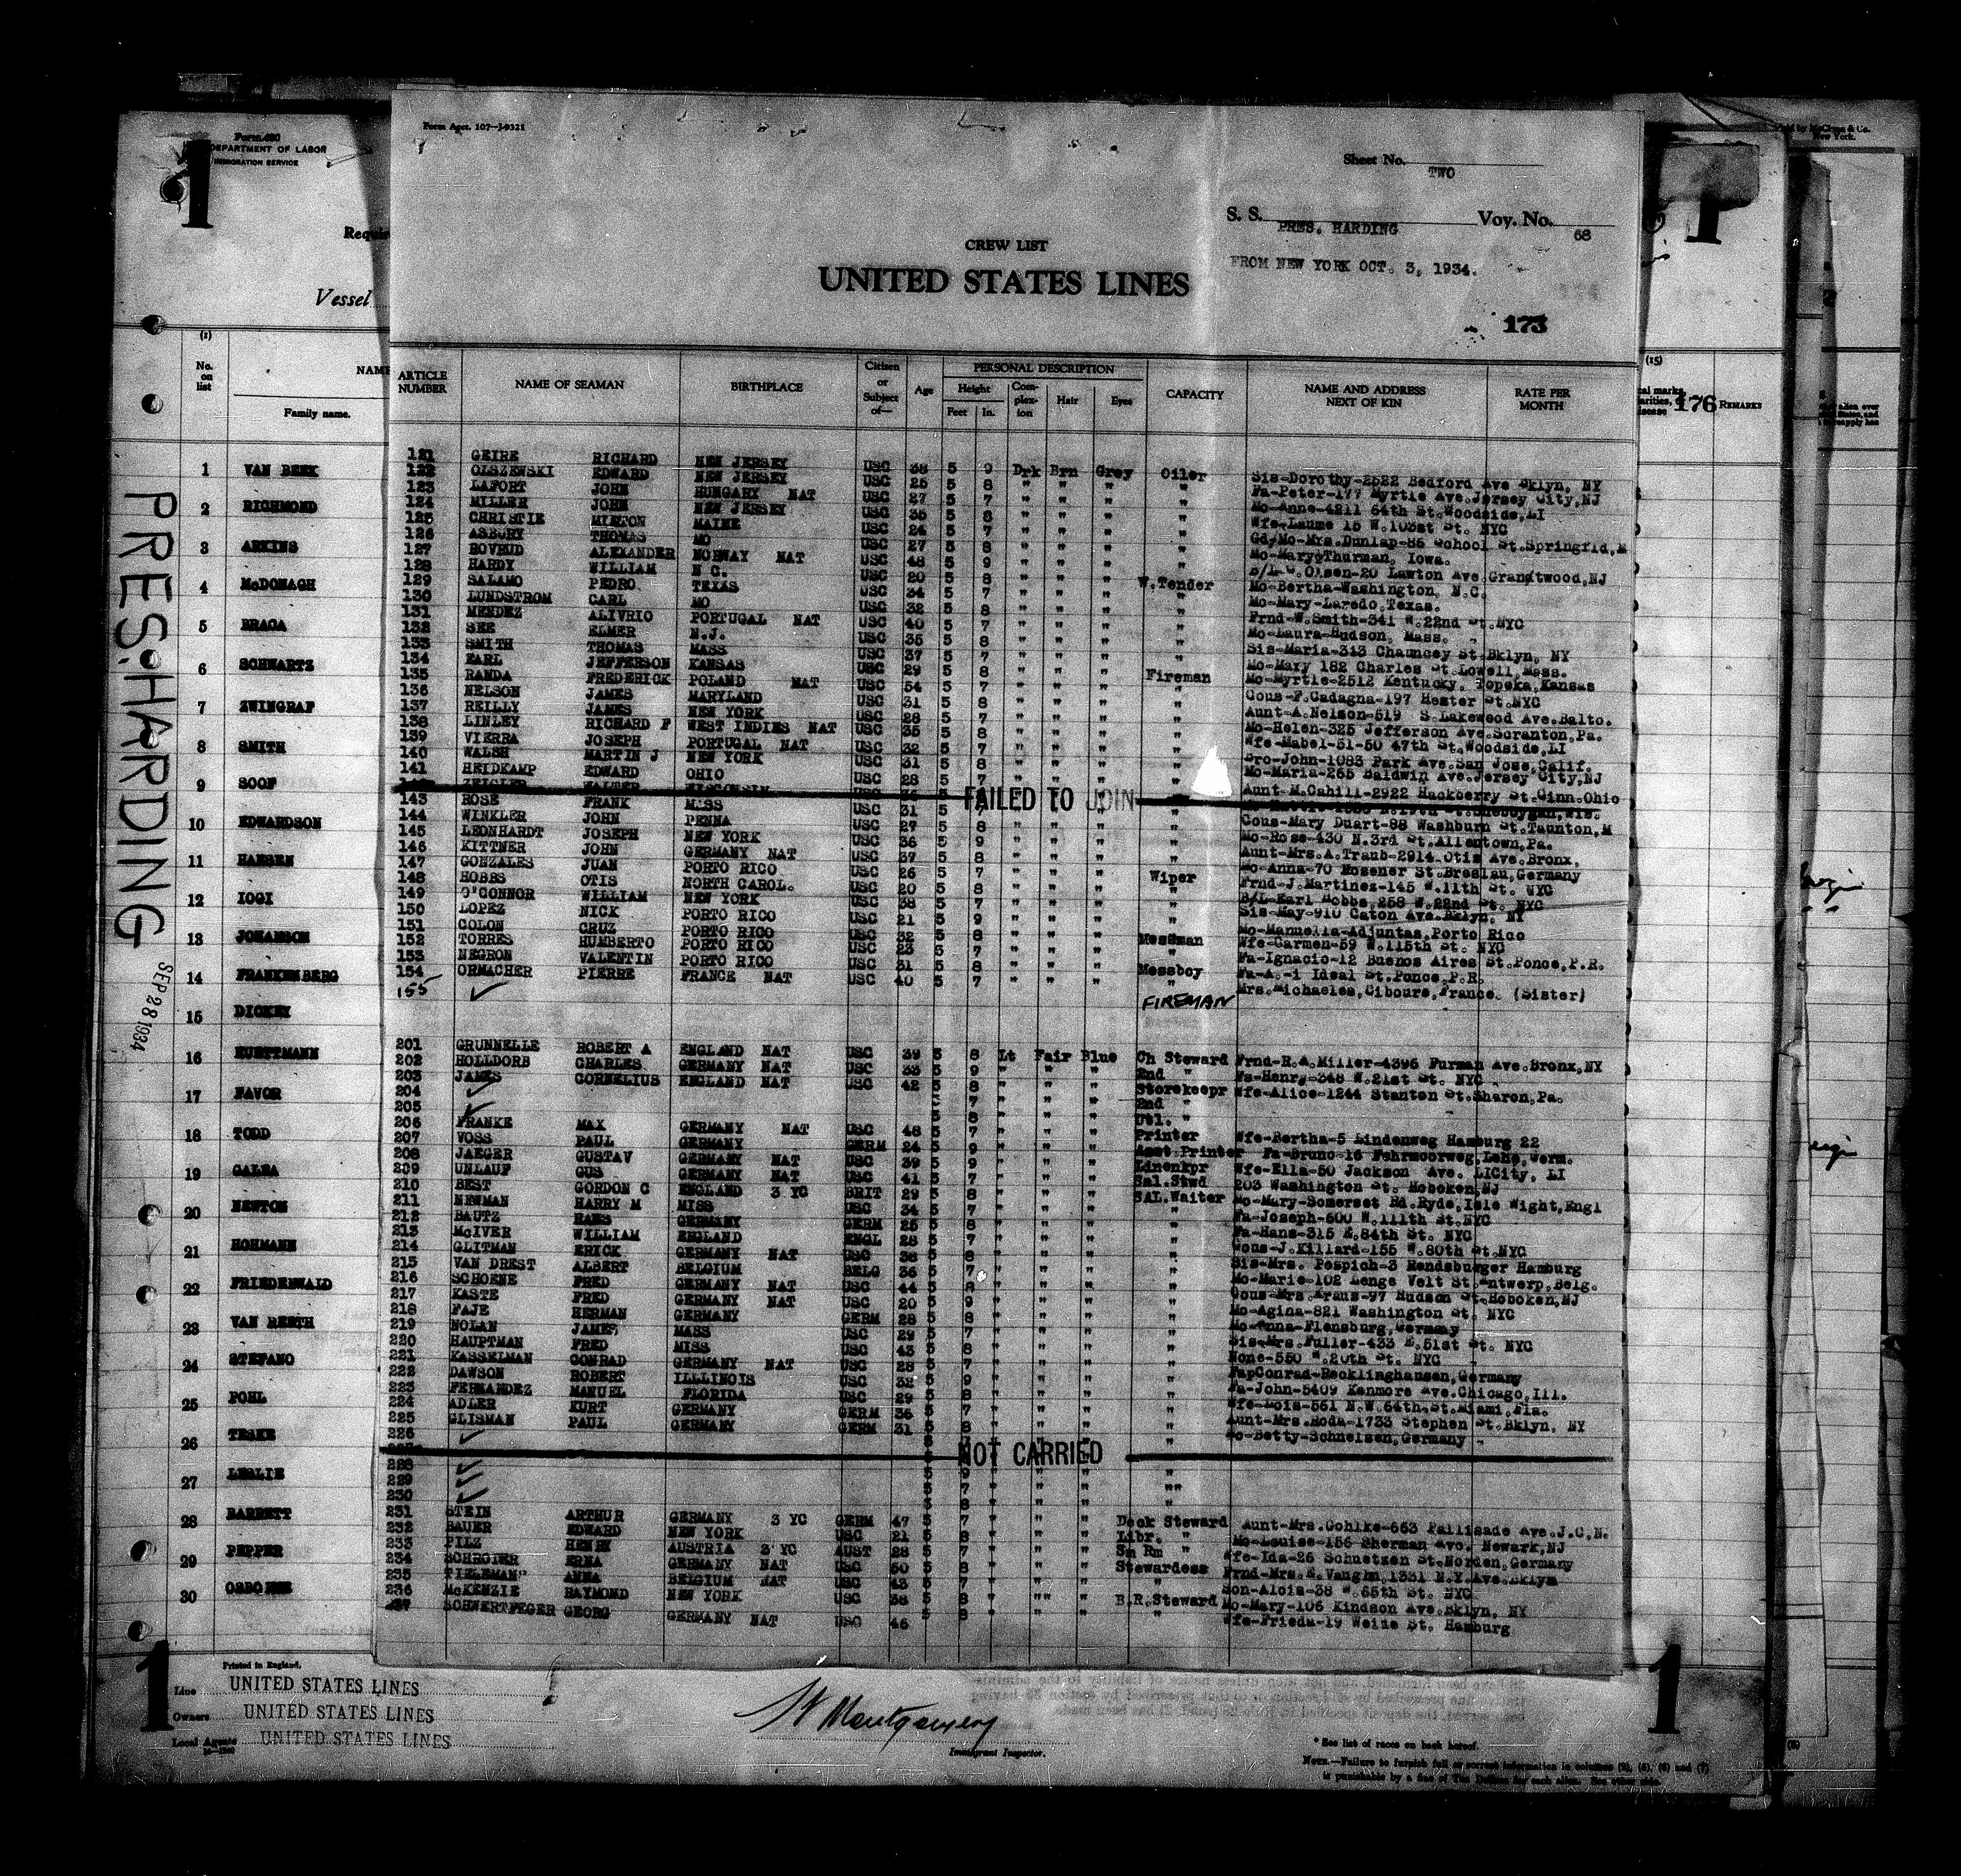 Form Agct. 107—J-9321
Sheet No. TWO
S. S. PRES. HARDING Voy. No. 68
CREW LIST
FROM NEW YORK OCT. 3, 1934.
UNITED STATES LINES
173
ARTICLE NUMBER NAME OF SEAMAN BIRTHPLACE Citizen or Subject of— Age PERSONAL DESCRIPTION Height Feet In. Complexion Hair Eyes CAPACITY NAME AND ADDRESS NEXT OF KIN RATE PER MONTH
121 GEIRE RICHARD NEW JERSEY USC 38 5 9 Drk Brn Grey Oiler Sis-Dorothy-2522 Bedford Ave Bklyn, NY
122 OLSZEWSKI EDWARD NEW JERSEY USC 25 5 8 " " " " Fa-Peter-177 Myrtle Ave.Jersey City,NJ
123 LAFORT JOHN HUNGARY NAT USC 27 5 7 " " " " Mo-Anne-4211 64th St.Woodside,LI
124 MILLER JOHN NEW JERSEY USC 35 5 8 " " " " Wfe-Laume 15 W.103st St. NYC
125 CHRISTIE MILTON MAINE USC 24 5 7 " " " " Gd/Mo-Mrs.Dunlap-86 School St.Springfld,M
126 ASBURY THOMAS MO USC 27 5 8 " " " " Mo-Mary-Thurman, Iowa.
127 ROVRUD ALEXANDER NORWAY NAT USC 48 5 9 " " " " B/L-O.Olsen-20 Lawton Ave.Grandtwood,NJ
128 HARDY WILLIAM N C. USC 20 5 8 " " " W.Tender Mo-Bertha-Washington, N.C.
129 SALAMO PEDRO TEXAS USC 34 5 7 " " " " Mo-Mary-Laredo,Texas.
130 LUNDSTROM CARL MO USC 32 5 8 " " " " Frnd-W.Smith-341 W.22nd St.NYC
131 MENDEZ ALIVRIO PORTUGAL NAT USC 40 5 7 " " " " Mo-Laura-Hudson, Mass.
132 SEE ELMER N.J. USC 35 5 8 " " " " Sis-Maria-313 Chauncey St.Bklyn, NY
133 SMITH THOMAS MASS USC 37 5 7 " " " " Mo-Mary 182 Charles St.Lowell,Mass.
134 EARL JEFFERSON KANSAS USC 29 5 8 " " " Fireman Mo-Myrtle-2512 Kentucky, Topeka,Kansas
135 RANDA FREDERICK POLAND NAT USC 54 5 7 " " " " Cous-F.Cadagna-197 Hester St.NYC
136 NELSON JAMES MARYLAND USC 31 5 8 " " " " Aunt-A.Nelson-519 S.Lakewood Ave.Balto.
137 REILLY JAMES NEW YORK USC 28 5 7 " " " " Mo-Helen-325 Jefferson Ave.Scranton,Pa.
138 LINLEY RICHARD F WEST INDIES NAT USC 35 5 8 " " " " Wfe-Mabel-51-50 47th St.Woodside,LI
139 VIERRA JOSEPH PORTUGAL NAT USC 32 5 7 " " " " Bro-John-1083 Park Ave.San Jose,Calif.
140 WALSH MARTIN J NEW YORK USC 31 5 8 " " " " Mo-Maria-265 Baldwin Ave.Jersey City,NJ
141 HEIDKAMP EDWARD OHIO USC 28 5 7 " " " " Aunt M.Cahill-2922 Hackberry St.Cinn.Ohio
ZEIGLER WALTER WISCONSIN FAILED TO JOIN
143 ROSE FRANK MASS USC 31 5 7 " " " " Cous-Mary Duart-88 Washburn St.Taunton,M
144 WINKLER JOHN PENNA USC 27 5 8 " " " " Mo-Rose-430 N.3rd St.Allentown,Pa.
145 LEONHARDT JOSEPH NEW YORK USC 36 5 9 " " " " Aunt-Mrs.A.Traub-2914 Otis Ave.Bronx,
146 KITTNER JOHN GERMANY NAT USC 37 5 8 " " " " Mo-Anna-70 Mosener St.Breslau,Germany
147 GONZALES JUAN PORTO RICO USC 26 5 7 " " " Wiper Frnd-J.Martinez-145 W.11th St. NYC
148 HOBBS OTIS NORTH CAROL. USC 20 5 8 " " " " B/L-Earl Hobbs,258 W.22nd St. NYC
149 O'CONNOR WILLIAM NEW YORK USC 38 5 7 " " " " Sis-May-910 Caton Ave.Bklyn, NY
150 LOPEZ NICK PORTO RICO USC 21 5 9 " " " " Mo-Manuella-Adjuntas,Porto Rico
151 COLON CRUZ PORTO RICO USC 32 5 8 " " " Messman Wfe-Carmen-59 W.115th St. NYC
152 TORRES HUMBERTO PORTO RICO USC 23 5 7 " " " " Fa-Ignacio-12 Buenos Aires St.Ponce,P.R.
153 NEGRON VALENTIN PORTO RICO USC 31 5 8 " " " Messboy Fa-A.-1 Ideal St.Ponce,P.R.
154 ORMACHER PIERRE FRANCE NAT USC 40 5 7 " " " " Mrs.Michaeles,Ciboure,France. (Sister)
155 ✓ FIREMAN
201 GRUNNELLE ROBERT A ENGLAND NAT USC 39 5 8 Lt Fair Blue Ch Steward Frnd-R.A.Miller-4396 Furman Ave.Bronx,NY
202 HOLLDORB CHARLES GERMANY NAT USC 33 5 9 " " " 2nd " Fa-Henry-348 W.21st St. NYC
203 JAMES CORNELIUS ENGLAND NAT USC 42 5 8 " " " Storekeepr Wfe-Alice-1244 Stanton St.Sharon,Pa.
204 ✓ 5 7 " " " 2nd "
205 ✓ 5 8 " " " Utl. "
206 FRANKE MAX GERMANY NAT USC 48 5 7 " " " Printer Wfe-Bertha-5 Lindenweg Hamburg 22
207 VOSS PAUL GERMANY GERM 24 5 9 " " " Asst Printer Fa-Bruno-16 Fehrmoorweg,Lehe,Germ.
208 JAEGER GUSTAV GERMANY NAT USC 39 5 9 " " " Linenkpr Wfe-Ella-50 Jackson Ave. LICity, LI
209 UNLAUF GUS GERMANY NAT USC 41 5 7 " " " Sal.Stwd 203 Washington St. Hoboken,NJ
210 BEST GORDON C ENGLAND 3 YC BRIT 29 5 8 " " " SAL.Waiter Mo-Mary-Somerset Rd.Ryde,Isle Wight,Engl
211 NEWMAN HARRY M MISS USC 34 5 7 " " " " Fa-Joseph-600 W.111th St.NYC
212 BAUTZ HANS GERMANY GERM 25 5 8 " " " " Fa-Hans-315 E.84th St. NYC
213 McIVER WILLIAM ENGLAND ENGL 28 5 7 " " " " Cous-J.Killard-155 W.80th St.NYC
214 GLITMAN ERICK GERMANY NAT USC 38 5 8 " " " " Sis-Mrs. Pospich-3 Rendsburger Hamburg
215 VAN DREST ALBERT BELGIUM BELG 36 5 7 " " " " Mo-Marie-102 Lenge Velt St.Antwerp,Belg.
216 SCHOENE FRED GERMANY NAT USC 44 5 8 " " " " Cous-Mrs.Kraus-97 Hudson St.Hoboken,NJ
217 KASTE FRED GERMANY NAT USC 20 5 9 " " " " Mo-Agina-821 Washington St. NYC
218 FAJE HERMAN GERMANY GERM 28 5 8 " " " " Mo-Anna-Flensburg,Germany
219 NOLAN JAMES MASS USC 29 5 7 " " " " Sis-Mrs.Fuller-433 E.51st St. NYC
220 HAUPTMAN FRED MISS USC 43 5 8 " " " " None-550 W.20th St. NYC
221 KASSELMAN CONRAD GERMANY NAT USC 28 5 7 " " " " FapConrad-Recklinghausen,Germany
222 DAWSON ROBERT ILLLINOIS USC 32 5 9 " " " " Fa-John-5409 Kenmore Ave.Chicago,Ill.
223 FERNANDEZ MANUEL FLORIDA USC 29 5 8 " " " " Wfe-Lois-561 N.W.64th.St.Miami,Fla.
224 ADLER KURT GERMANY GERM 36 5 7 " " " " Aunt-Mrs.Roda-1733 Stephen St.Bklyn, NY
225 GLISMAN PAUL GERMANY GERM 31 5 8 " " " " Mo-Betty-Schnelsen,Germany
226 ✓
NOT CARRIED
228 ✓ 5 9 " " " "
229 ✓ 5 7 " " " ""
230 ✓ 5 8 " " " "
231 STEIN ARTHUR GERMANY 3 YC GERM 47 5 7 " " " Deck Steward Aunt-Mrs.Gohlke-663 Pallisade Ave.J.C.N.
232 BAUER EDWARD NEW YORK USC 21 5 8 " " " Libr. " Mo-Louise-156 Sherman Ave. Newark,NJ
233 PILZ HENRY AUSTRIA 3 YC AUST 28 5 7 " " " Sm Rm " Wfe-Ida-26 Schnetzen St.Norden,Germany
234 SCHROIER ERNA GERMANY NAT USC 50 5 8 " " " Stewardess Frnd-Mrs.E.Vaughn,1331 N.Y.Ave.Bklyn
235 TIELEMAN ANNA BELGIUM NAT USC 43 5 7 " " " " Son-Alois-38 W.65th St. NYC
236 McKENZIE RAYMOND NEW YORK USC 38 5 8 " "" " B.R.Steward Mo-Mary-106 Kindson Ave.Bklyn, NY
237 SCHWERTFEGER GEORG GERMANY NAT USC 46 5 8 " " " " Wfe-Frieda-19 Weile St. Hamburg
1
Form 680
DEPARTMENT OF LABOR
IMMIGRATION SERVICE
Vessel
(1)
No. on list
Family name.
1 VAN BEEK
2 RICHMOND
3 ARKINS
4 McDONAGH
5 BRAGA
6 SCHWARTZ
7 ZWINGRAF
8 SMITH
9 SOOF
10 EDWARDSON
11 HANSEN
12 IOGI
13 JOHANSON
14 FRANKENSBERG
15 DICKEY
16 RUETTMANN
17 FAVOR
18 TODD
19 GALEA
20 NEWTON
21 HOHMANN
22 FRIEDENWALD
23 VAN REETH
24 STEFANO
25 POHL
26 TESKE
27 LESLIE
28 BARRETT
29 PEPPER
30 OSBORNE
PRES. HARDING
SEP 28 1934
(15)
176 REMARKS
1
Printed in England.
Line UNITED STATES LINES
Owners UNITED STATES LINES
Local Agents UNITED STATES LINES
Montgomery
Immigrant Inspector.
* See list of races on back hereof.
NOTE.—Failure to furnish full or correct information in columns (2), (5), (6) and (7)
is punishable by a fine of Ten Dollars for each alien. See other side.
1